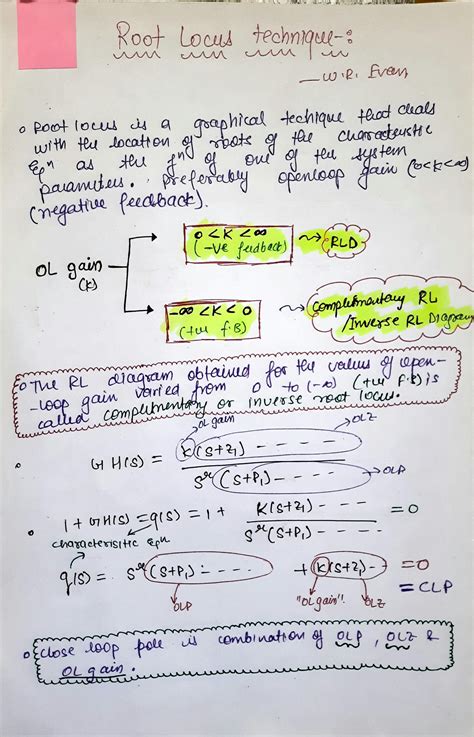 Root Locus technique-:
— W.R. Evans
Root locus is a graphical techique that deals
with the location of roots of the characteristic
Eqⁿ as the fⁿ of one of the system
parameters. Preferably openloop gain (0<K<∞)
(negative feedback).
0 < K < ∞
(-ve feedback)
RLD
OL gain
(K)
-∞ < K < 0
(+ve f.B)
Complimentary RL
/Inverse RL Diagram
The RL diagram obtained for the values of open-
-loop gain varied from 0 to (-∞) (+ve f.B) is
called complimentary or inverse root locus.
OL gain
OLZ
G H(s) = K(S+Z₁) - - - -
Sⁿ(S+P₁) - - - -
OLP
1 + GH(s) = q(s) = 1 + K(S+Z₁) - - - - = 0
Sⁿ(S+P₁) - - - -
characterisitic Eqⁿ
q(s) = Sⁿ(S+P₁) - - - - + K(S+Z₁) - - = 0
= CLP
OLP
"OL gain"
OLZ
Close loop pole is combination of OLP, OLZ &
OL gain.